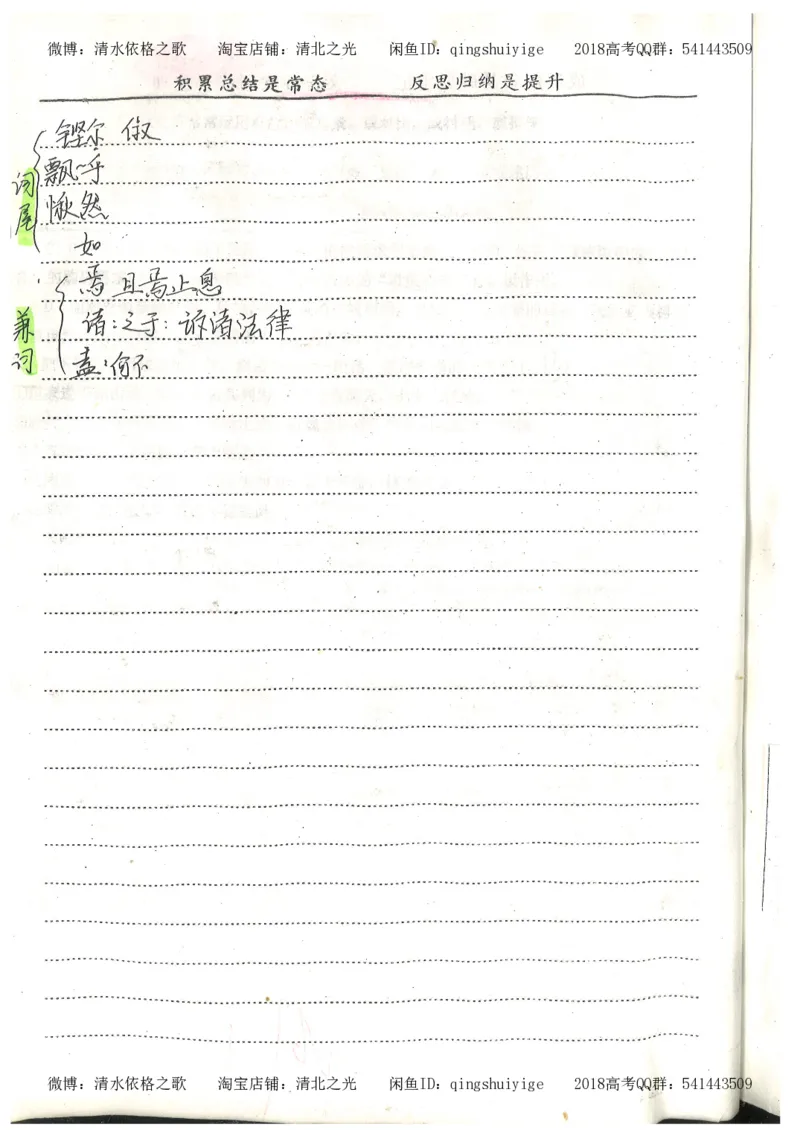 微博：清水依格之歌 淘宝店铺：清北之光 闲鱼ID：qingshuiyige 2018高考QQ群：541443509
积累总结是常态 反思归纳是提升
词尾
铿尔
飘乎
愀然
如
兼词
焉 且焉止息
诸：之于：诉诸法律
盍：何不
微博：清水依格之歌 淘宝店铺：清北之光 闲鱼ID：qingshuiyige 2018高考QQ群：541443509